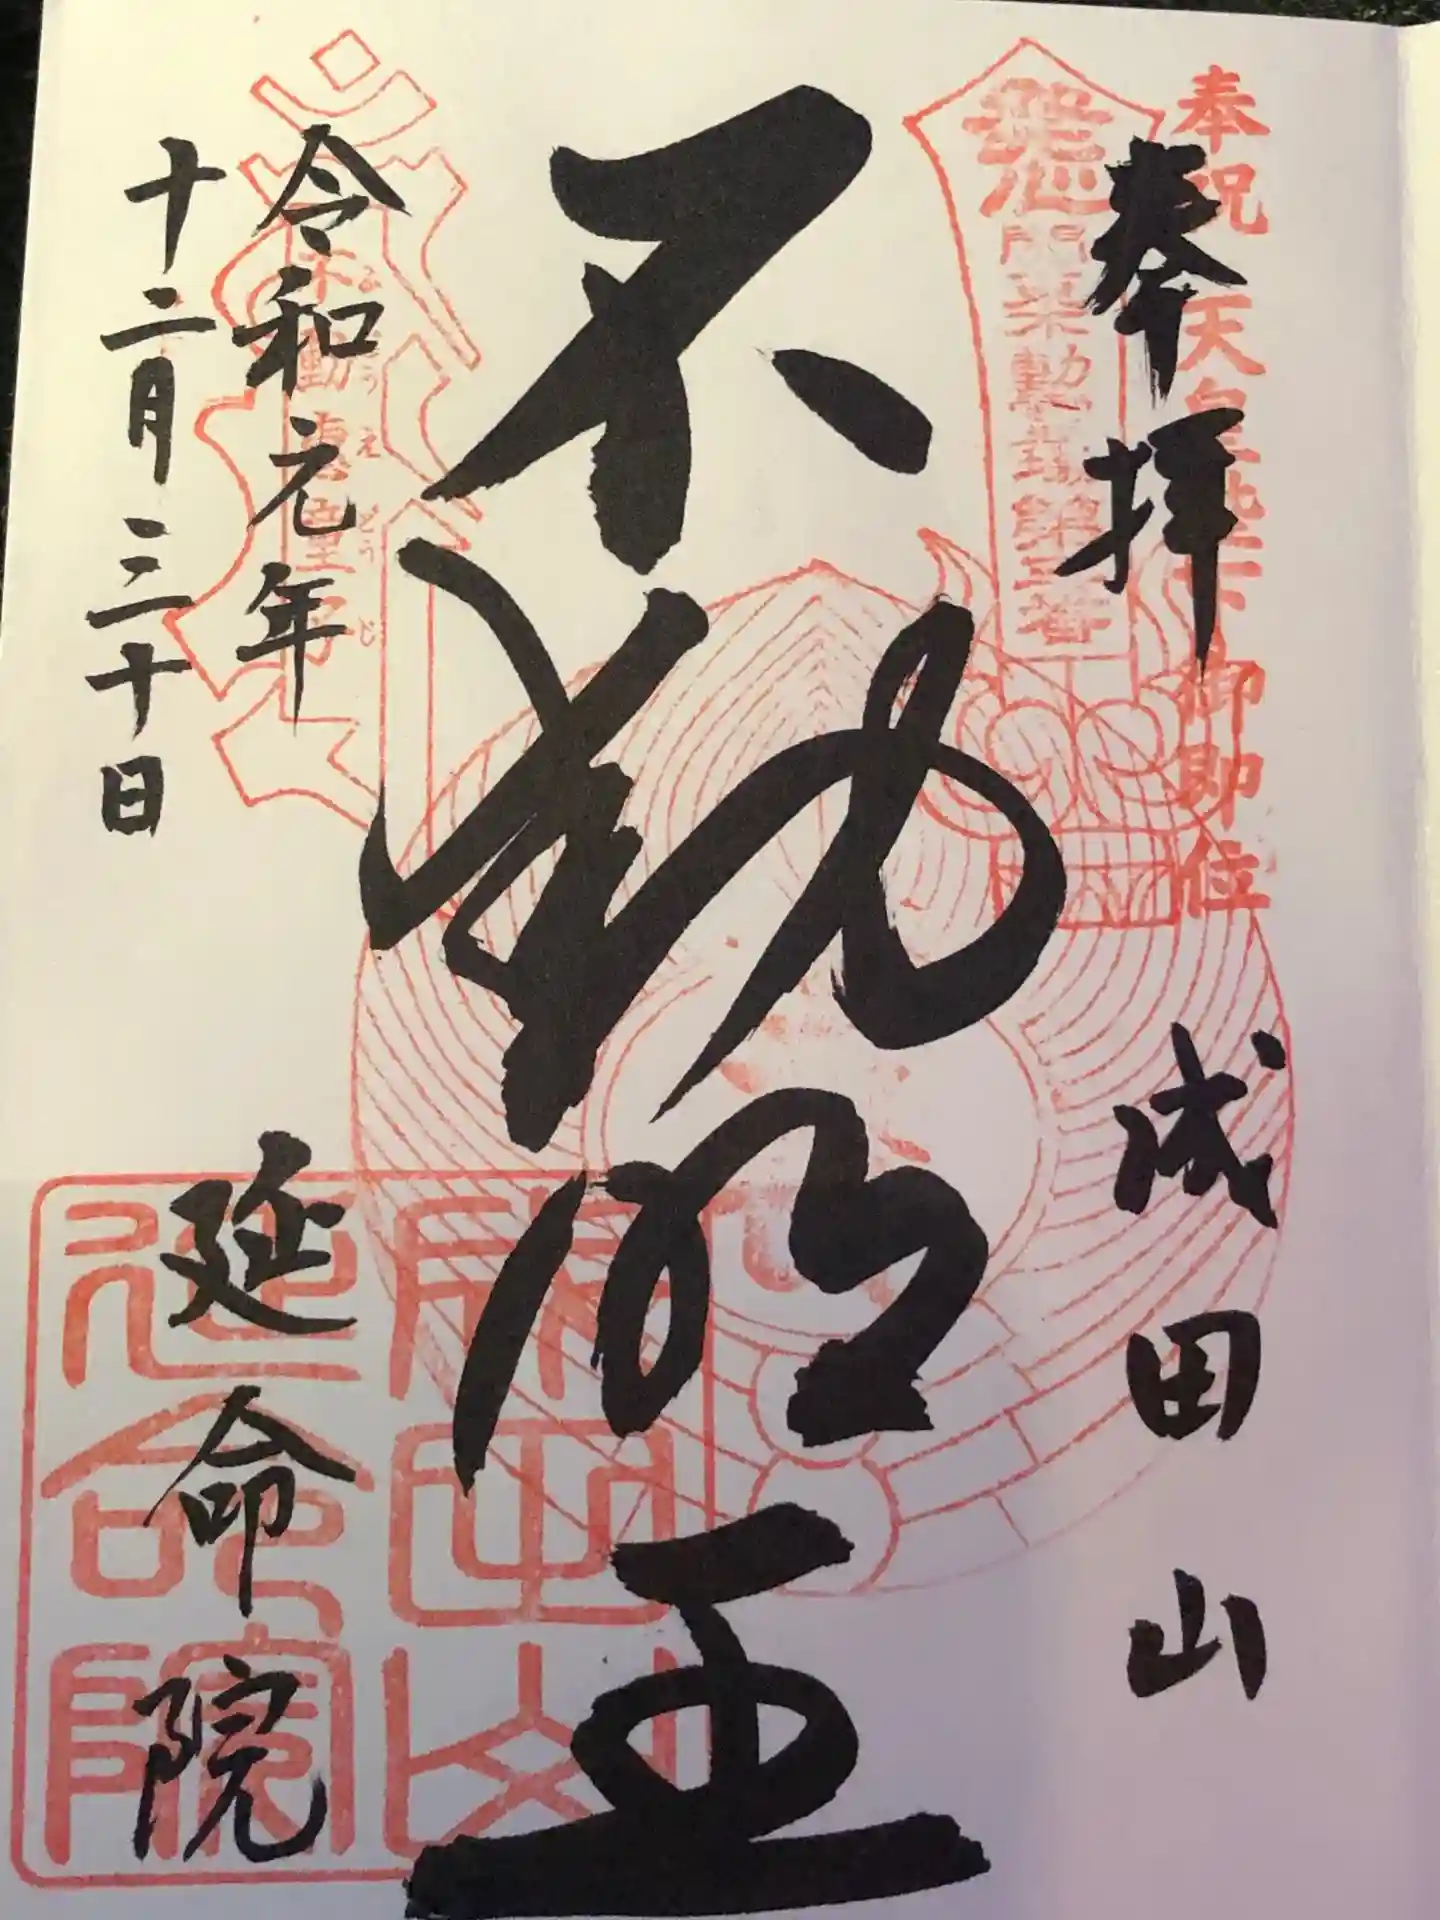 奉祝 天皇陛下御即位
奉拝
成田山
不動明王
令和元年
十二月三十日
延命院
成田山
延命院